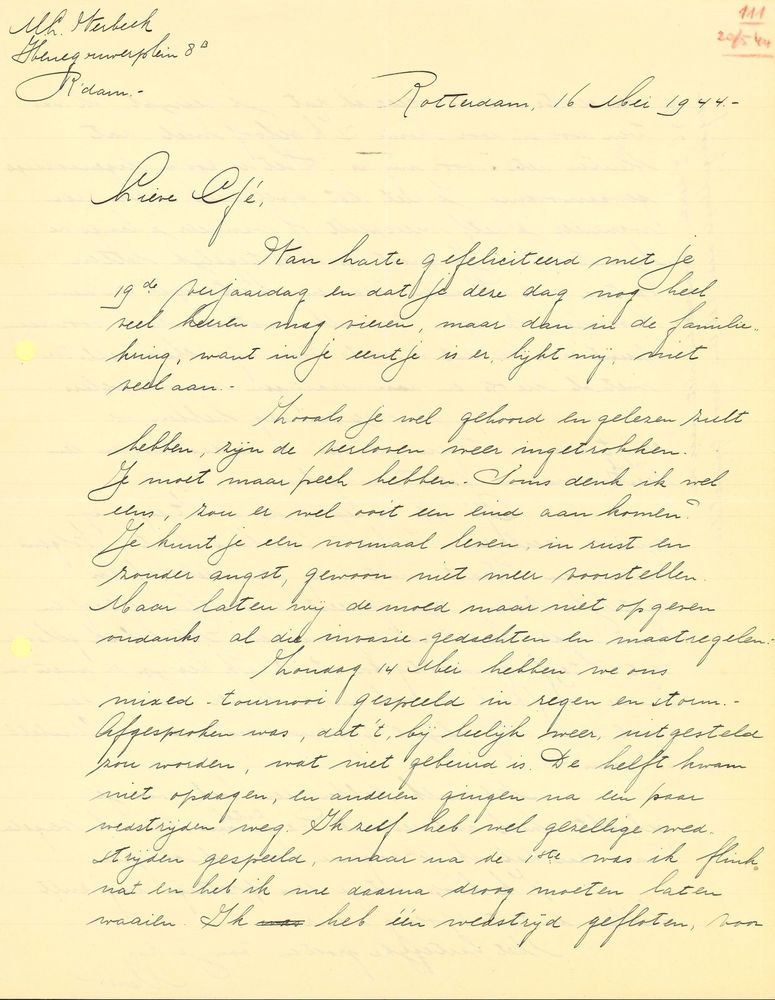 M.C. Werbeck
Henegouwerplein 8B
R'dam.-
111
20/5 '44
Rotterdam, 16 Mei 1944.-
Lieve Efé,
Van harte gefeliciteerd met je
19de verjaardag en dat je deze dag nog heel
veel keeren mag vieren, maar dan in de familie-
kring, want in je eentje is er, lijkt mij, niet
veel aan.-
Zooals je wel gehoord en gelezen zult
hebben, zijn de verloven weer ingetrokken.
Je moet maar pech hebben.- Soms denk ik wel
eens, zou er wel ooit een eind aan komen?
Je kunt je een normaal leven, in rust en
zonder angst, gewoon niet meer voorstellen.
Maar laten wij de moed maar niet opgeven
ondanks al die invasie-gedachten en maatregelen.-
Zondag 14 Mei hebben we ons
mixed-tournooi gespeeld in regen en storm.-
Afgesproken was, dat 't, bij leelijk weer, uitgesteld
zou worden, wat niet gebeurd is. De helft kwam
niet opdagen, en anderen gingen na een paar
wedstrijden weg. Ik zelf heb wel gezellige wed-
strijden gespeeld, maar na de 1ste was ik flink
nat en heb ik me daarna droog moeten laten
waaien. Ik was heb één wedstrijd gefloten, voor